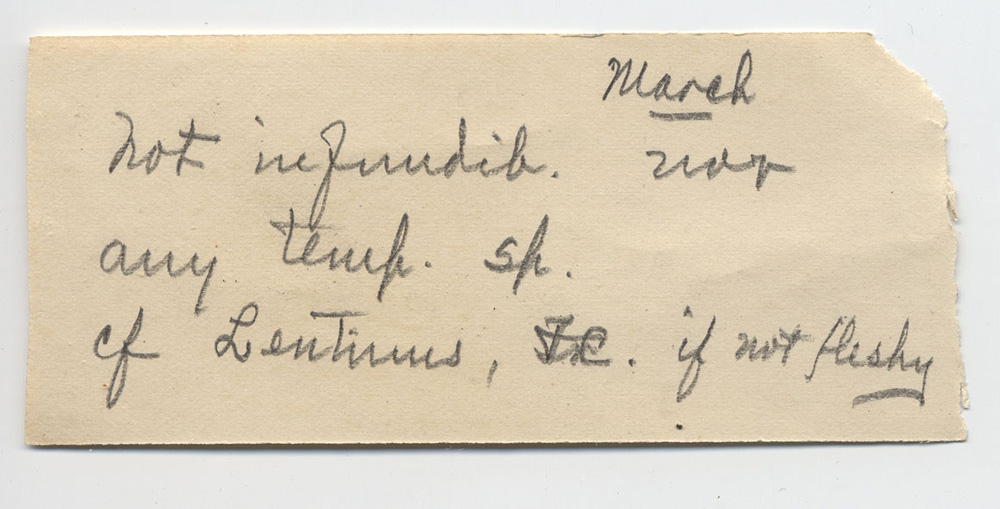 March
Not infundib. nor
any temp. sp.
cf Lentinus, . if not fleshy